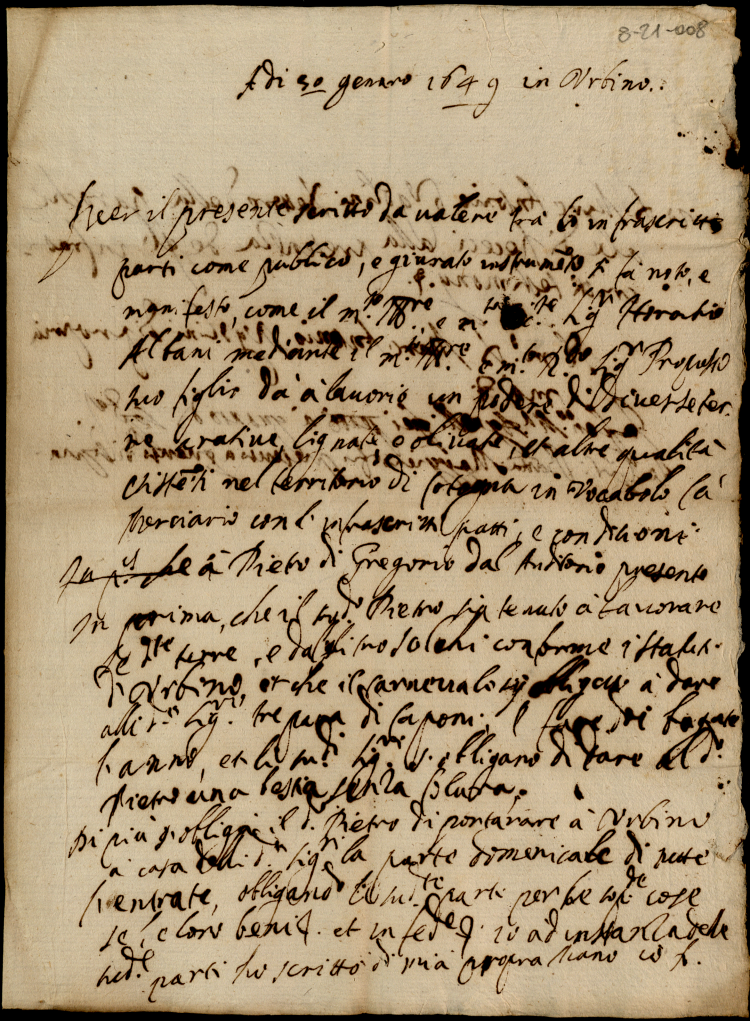 8-21-008
Adi 30 genaro 1649 in Urbino.
Per il presente scritto da valere tra li infrascritti
parti come publico, e giurato instrumẽto si fa noto, e
manifesto, come il m.to Ill.re e m.to Sig.r Horatio
Albani mediante il m.to Ill.re e m.to R.do Sig.r Proposto
suo figlio dà a lavorio un podere di diverse ter-
re arative, lignate e olivate, et altre qualità
esistẽti nel territorio di in Vocabolo Ca
Merciario con l'infrascritti patti, e conditioni
In p.is che à Pietro di Gregorio dal Auditorio presente
In prima, che il sud.o Pietro sia tenuto à lavorare
le d.te terre, e dalli tro solchi conforme i statuti
di Urbino, et che il carnevale obligato à dare
alli d.i Sig.ri tre para di Caponi, fare doi
l'anno, et li sud.i Sig.ri s'obligano di dare al d.o
Pietro una bestia senza
Di più s'obliga il d.o Pietro di portarare à Urbino
a casa delli d.i Sig.ri la parte domenicale di tutte
l'entrate, obligando le sud.te parti per le sop.te cose
se, e loro beni et in fede io ad instanza dele
sud.e parti ho scritto di mia propria mano io